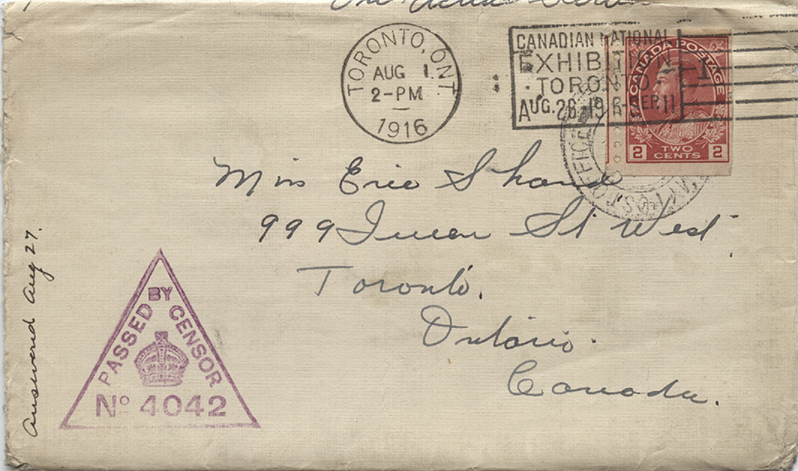 TORONTO, ONT.
AUG 1
2-PM
1916
CANADIAN NATIONAL
EXHIBITION
TORONTO
AUG. 26-1916-SEPTER 11
CANADA POSTAGE
2 TWO CENTS 2
POST OFFICE
Miss Eric Shand
999 Queen St West.
Toronto.
Ontario.
Canada.
Answered Aug 27.
PASSED BY CENSOR
No 4042